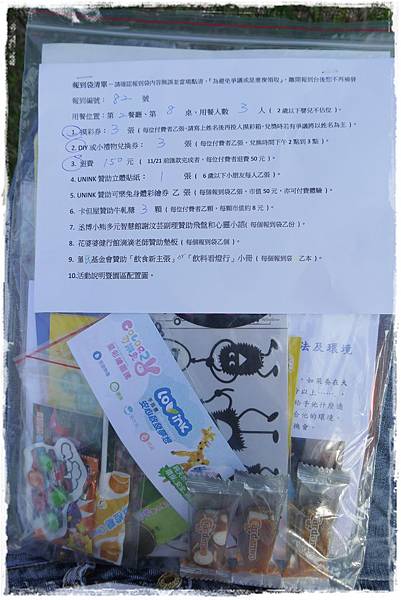 報到袋清單－請確認報到袋內容無誤並當場點清，「為避免爭議或是重複領取」，離開報到台後恕不再補發
報到編號： 82 號
用餐位置：第 2 餐廳、第 8 桌，用餐人數 3 人 ( 2 歲以下嬰兒不佔位 )。
1. 摸彩券： 3 張 ( 每位付費者乙張，請寫上姓名後再投入摸彩箱，兌獎時若有爭議將以姓名為主 )。
2. DIY 或小禮物兌換券： 3 張 ( 每位付費者乙張，兌換時間下午 2 點到 3 點 )。
3. 退費 150 元 ( 11/21 前匯款完成者，每位付費者退費 50 元 )。
4. UNINK 贊助立體貼紙： 1 張 ( 6 歲以下小朋友每人乙張 )。
5. UNINK 贊助可樂兔身體彩繪券 乙 張 ( 每個報到袋乙張，市價 50 元，亦可付費體驗 )。
6. 卡但屋贊助牛軋糖 3 顆 ( 每位付費者乙顆，每顆市值約 8 元 )。
7. 丞博小熊多元智慧館謝汶芸副理贊助飛盤和心靈小語( 每個報到袋乙份 )。
8. 花婆婆健行館滴滴老師贊助墊板 ( 每個報到袋乙個 )。
9. 董氏基金會贊助「飲食新主張」or「飲料看燈行」小冊 ( 每個報到袋 乙本 )。
10.活動說明暨園區配置圖。
法及環境
，如花卉在大
機會。
unink